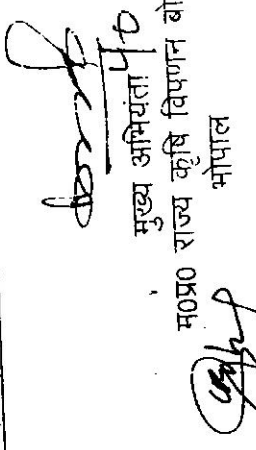 मुख्य अभियंता
म०प्र० राज्य कृषि विपणन बो
भोपाल